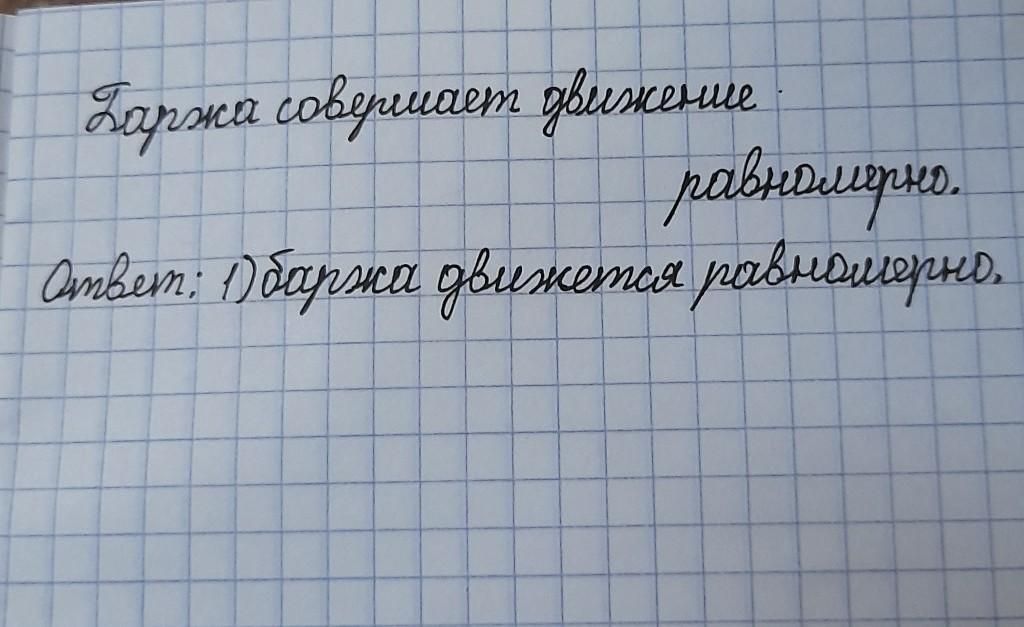 Баржа совершает движение
равномерно.
Ответ: 1) баржа движется равномерно.